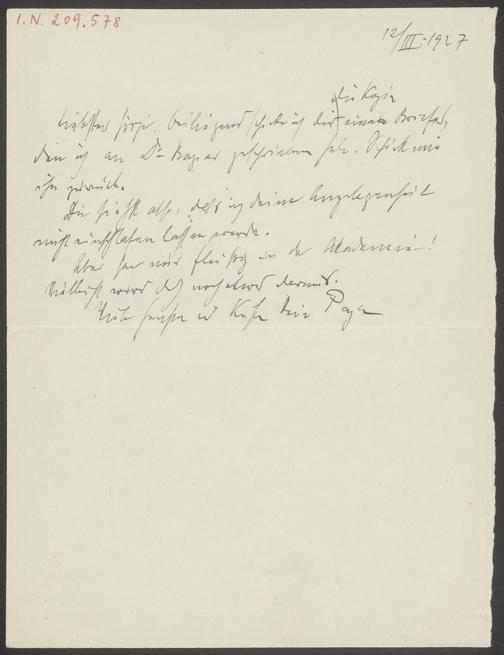 I.N. 209.578
12/III. 1927
die Kopie
beiliegend schicke ich dir eines Briefes,
den ich an Dr. geschrieben habe. Schick mir
ihn zurück.
Du siehst also, daß ich deine Angelegenheit
nicht einschlafen lassen werde.
Aber sei nur fleißig in der Akademie!
Vielleicht wird doch noch etwas daraus.
Viele Grüße und Küsse Dein Papa